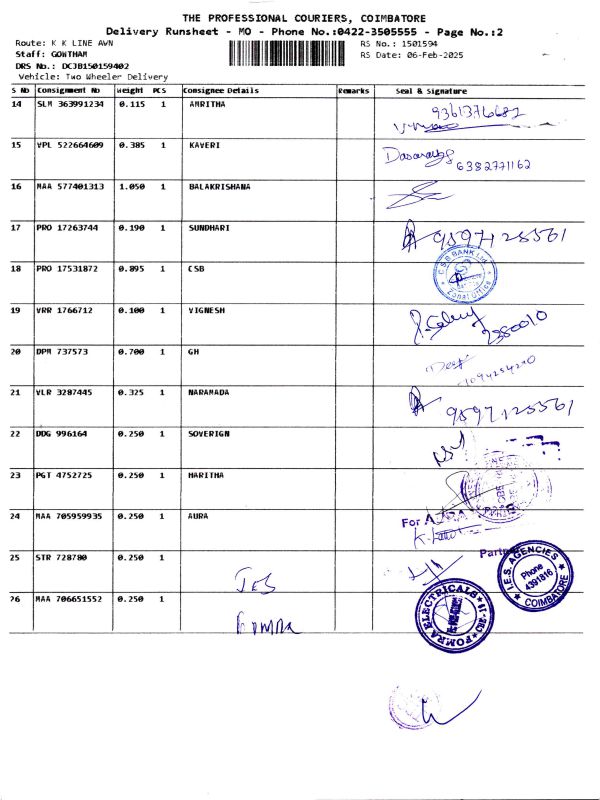 THE PROFESSIONAL COURIERS, COIMBATORE
Delivery Runsheet - MO - Phone No.:0422-3505555 - Page No.:2
Route: K K LINE AWN
Staff: GOWTHAM
DRS No.: DCJB150159402
Vehicle: Two Wheeler Delivery
RS No.: 1501594
RS Date: 06-Feb-2025
S No Consignment No Weight PCS Consignee Details Remarks Seal & Signature
14 SLM 363991234 0.115 1 AMRITHA 9361376682
15 VPL 522664609 0.385 1 KAVERI 6382771162
16 MAA 577401313 1.050 1 BALAKRISHANA
17 PRO 17263744 0.190 1 SUNDHARI 9597125561
18 PRO 17531872 0.895 1 CSB
C S B BANK Ltd.
Zonal Office
19 VRR 1766712 0.100 1 VIGNESH
20 DPM 737573 0.700 1 GH
21 VLR 3287445 0.325 1 NARAMADA 9597125561
22 DDG 996164 0.250 1 SOVERIGN
23 PGT 4752725 0.250 1 HARITHA
24 MAA 705959935 0.250 1 AURA
For
25 STR 728780 0.250 1
IES
I.E.S. AGENCIES
Phone
4391816
COIMBATORE
26 MAA 706651552 0.250 1
POMRA
POMRA ELECTRICALS
CBE-18